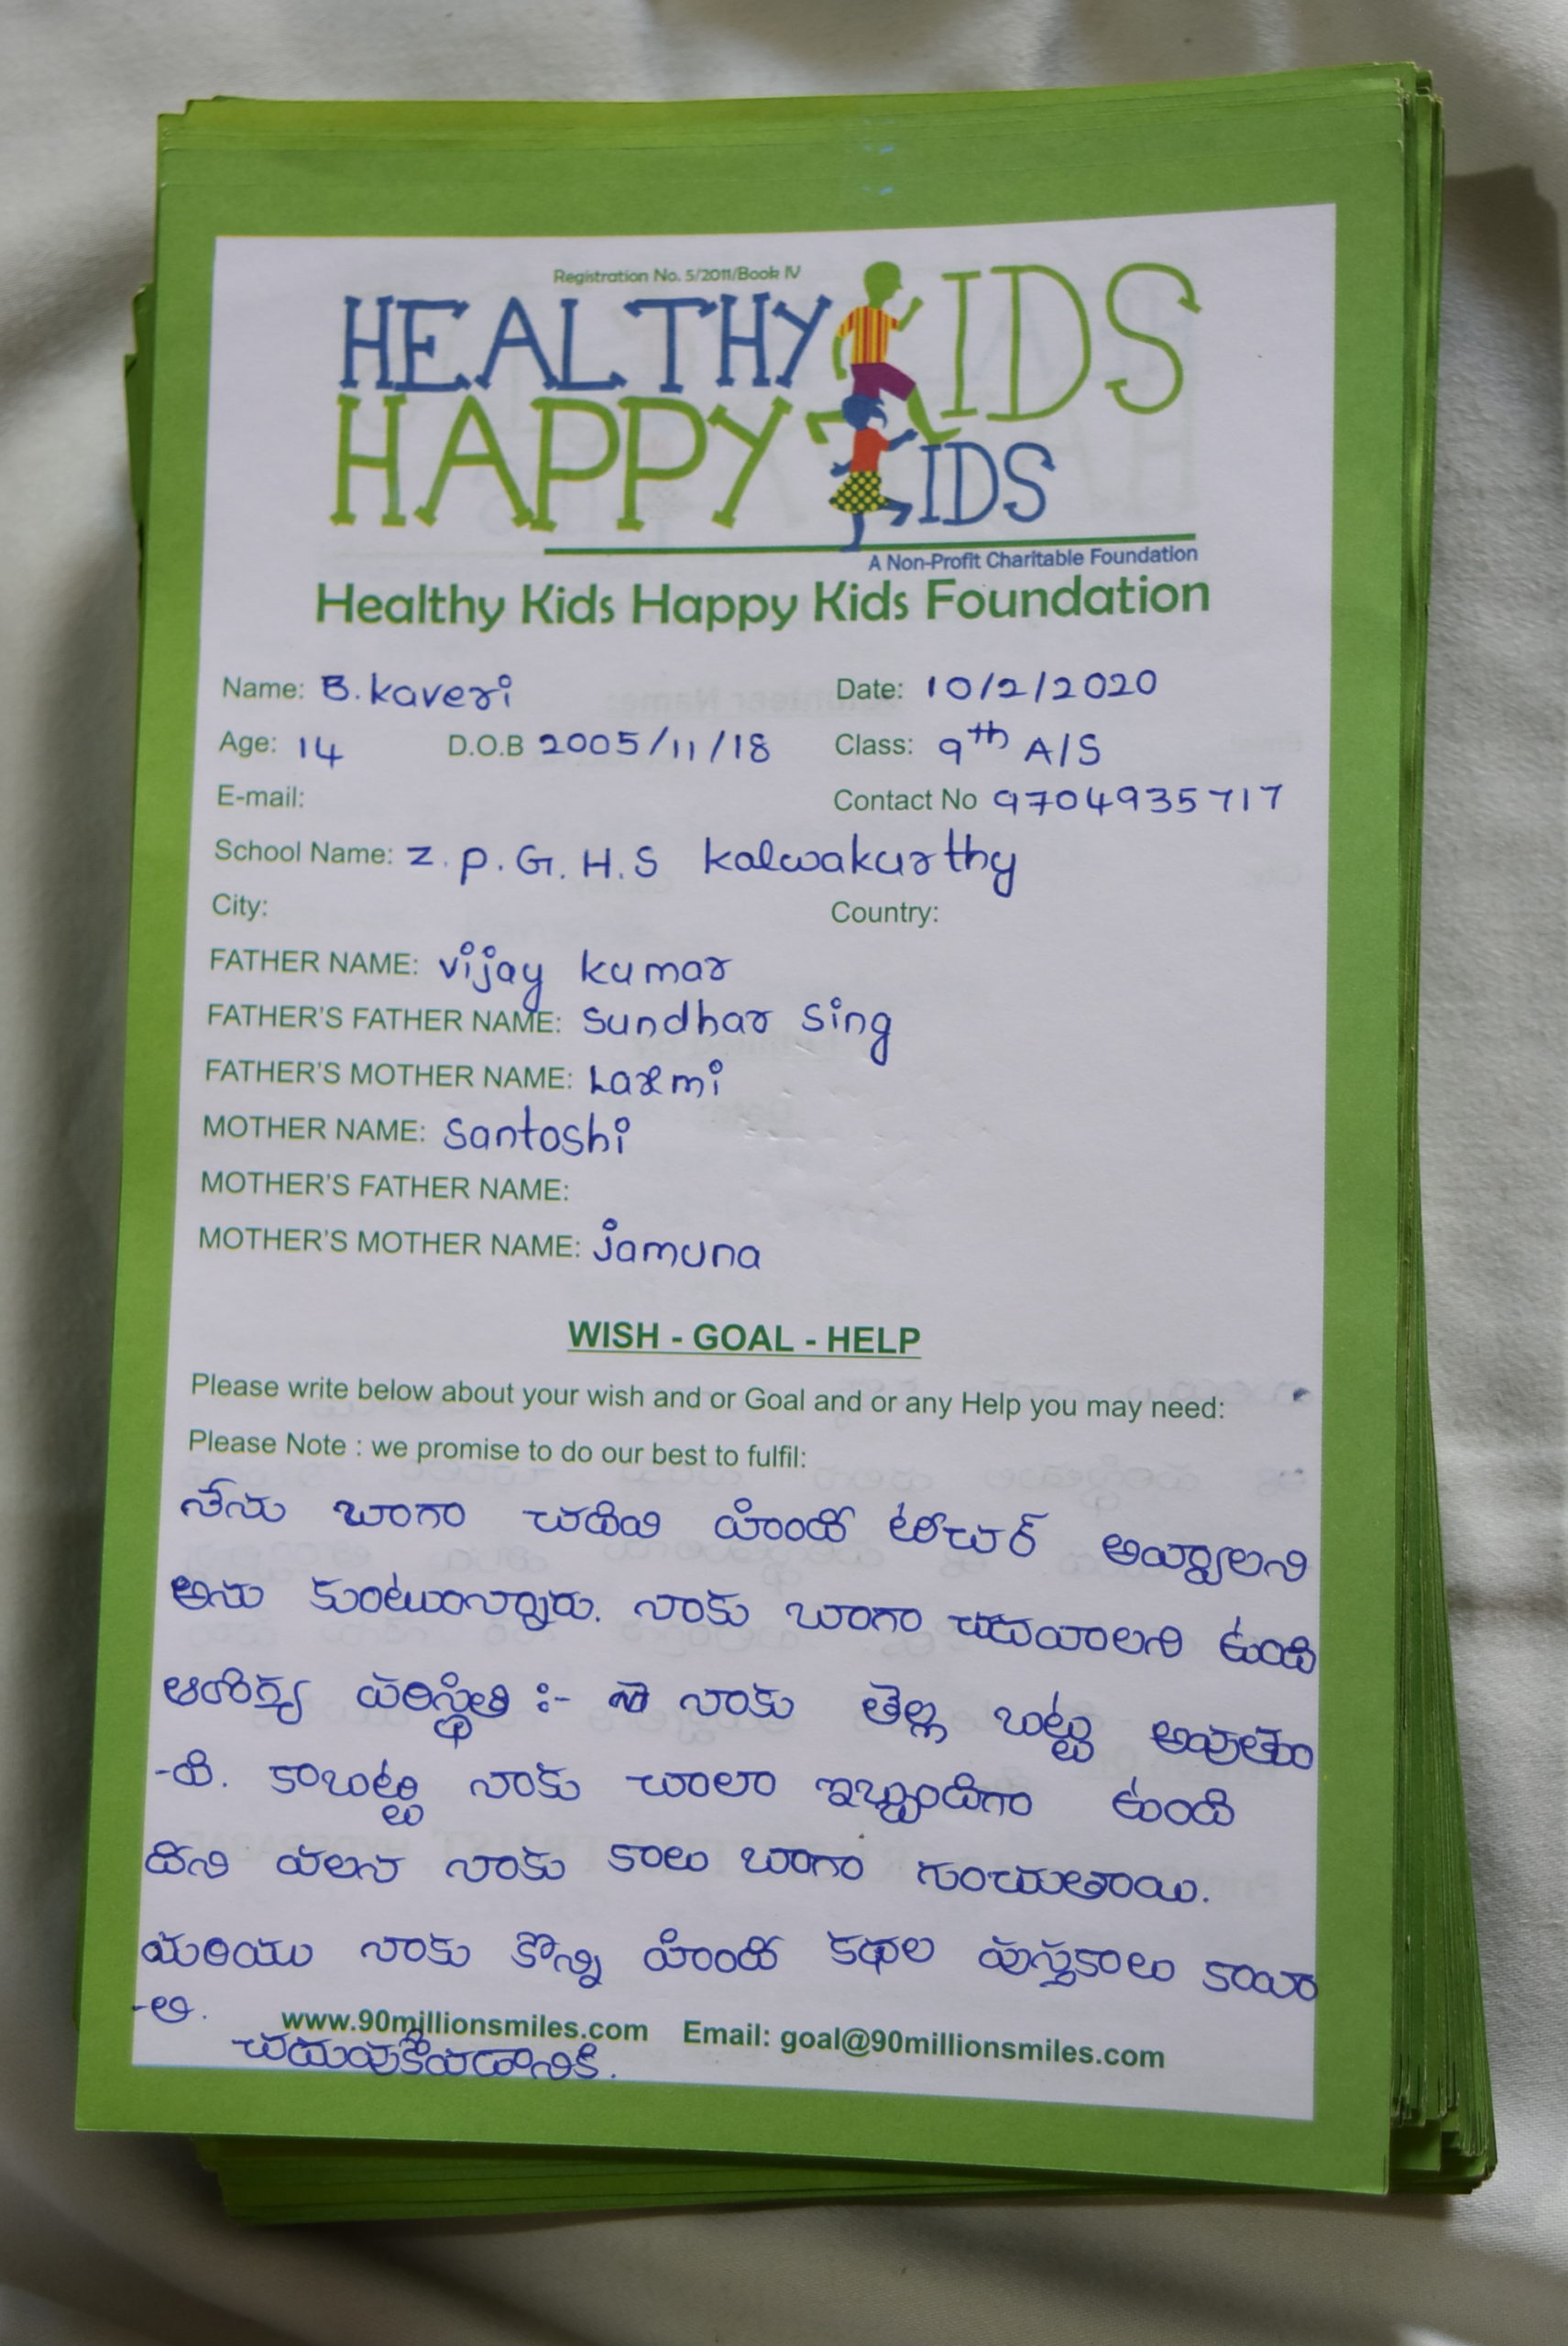 Registration No. 5/2011/Book IV
HEALTHY KIDS
HAPPY KIDS
A Non-Profit Charitable Foundation
Healthy Kids Happy Kids Foundation
Name: B.kaveri Date: 10/2/2020
Age: 14 D.O.B 2005/11/18 Class: 9th A/S
E-mail: Contact No 9704935717
School Name: Z.P.G.H.S kalwakurthy
City: Country:
FATHER NAME: vijay kumar
FATHER'S FATHER NAME: Sundhar Sing
FATHER'S MOTHER NAME: Laxmi
MOTHER NAME: Santoshi
MOTHER'S FATHER NAME:
MOTHER'S MOTHER NAME: jamuna
WISH - GOAL - HELP
Please write below about your wish and or Goal and or any Help you may need:
Please Note : we promise to do our best to fulfil:
నేను బాగా చదివి హిందీ టీచర్ అవ్వాలని
అను కుంటున్నారు. నాకు బాగా చదవాలని ఉంది
పరిస్థితి :- నాకు తెల్ల బట్ట అవుతుం
-ది. కాబట్టి నాకు చాలా ఇబ్బందిగా ఉంది
దిని వలన నాకు కాలు బాగా గుంచుతాయి.
మరియు నాకు కొన్ని హిందీ కథల పుస్తకాలు కావా
-లి.
www.90millionsmiles.com Email: goal@90millionsmiles.com
చదువుకోవడానికి.